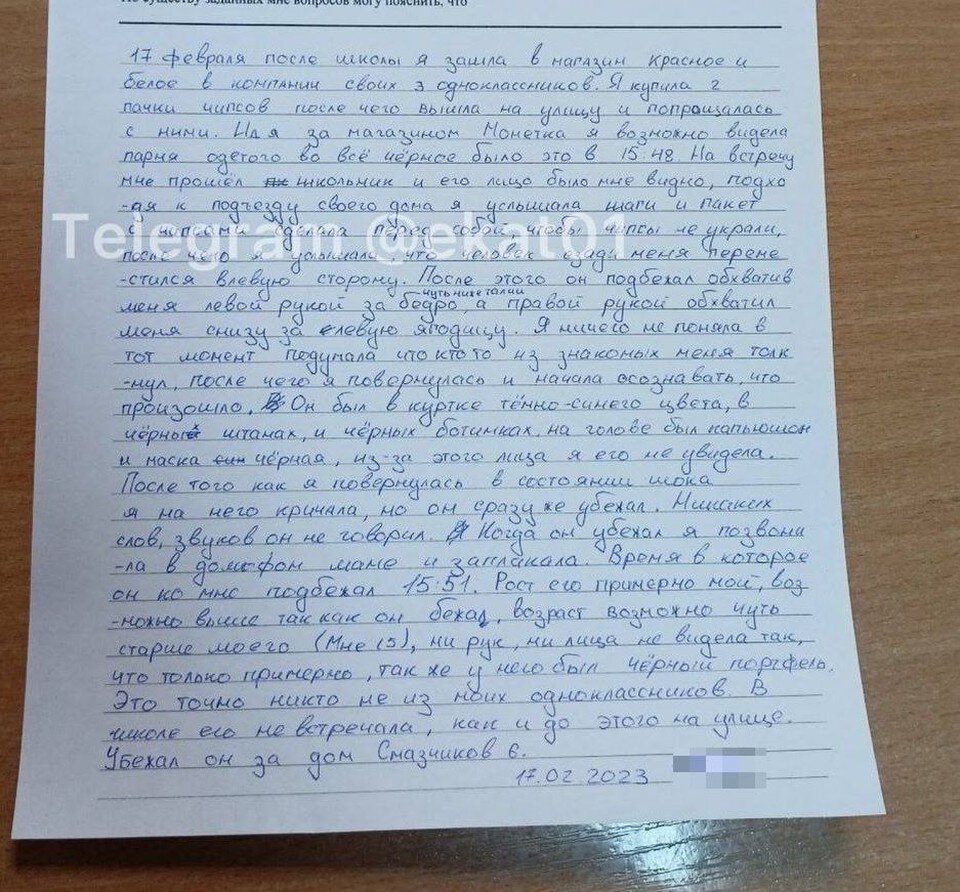 По существу заданных мне вопросов могу пояснить, что
17 февраля после школы я зашла в магазин Красное и
белое в компании своих 3 одноклассников. Я купила 2
пачки чипсов после чего вышла на улицу и попрощалась
с ними. Идя за магазином Монетка я возможно видела
парня одетого во всё чёрное было это в 15:48. На встречу
мне прошёл школьник и его лицо было мне видно, подхо
-дя к подъезду своего дома я услышала шаги и пакет
с чипсами сделала перед собой, чтобы чипсы не украли,
Telegram @ekat01
после чего я услышала, что человек сзади меня переме
-стился влевую сторону. После этого он подбежал обхватив
чуть ниже талии
меня левой рукой за бедро, а правой рукой обхватил
меня снизу за левую ягодицу. Я ничего не поняла в
тот момент подумала что кто то из знакомых меня толк
-нул, после чего я повернулась и начала осознавать, что
произошло. Он был в куртке тёмно-синего цвета, в
чёрных штанах, и чёрных ботинках, на голове был капюшон
и маска чёрная, из-за этого лица я его не увидела.
После того как я повернулась в состоянии шока
я на него кричала, но он сразу же убежал. Никаких
слов, звуков он не говорил. Когда он убежал я позвони
-ла в домофон маме и заплакала. Время в которое
он ко мне подбежал 15:51. Рост его примерно мой, воз
-можно выше так как он бежал, возраст возможно чуть
старше моего (Мне 15), ни рук, ни лица не видела так,
что только примерно, так же у него был чёрный портфель.
Это точно никто не из моих одноклассников. В
школе его не встречала, как и до этого на улице.
Убежал он за дом Смазчиков 6.
17.02.2023